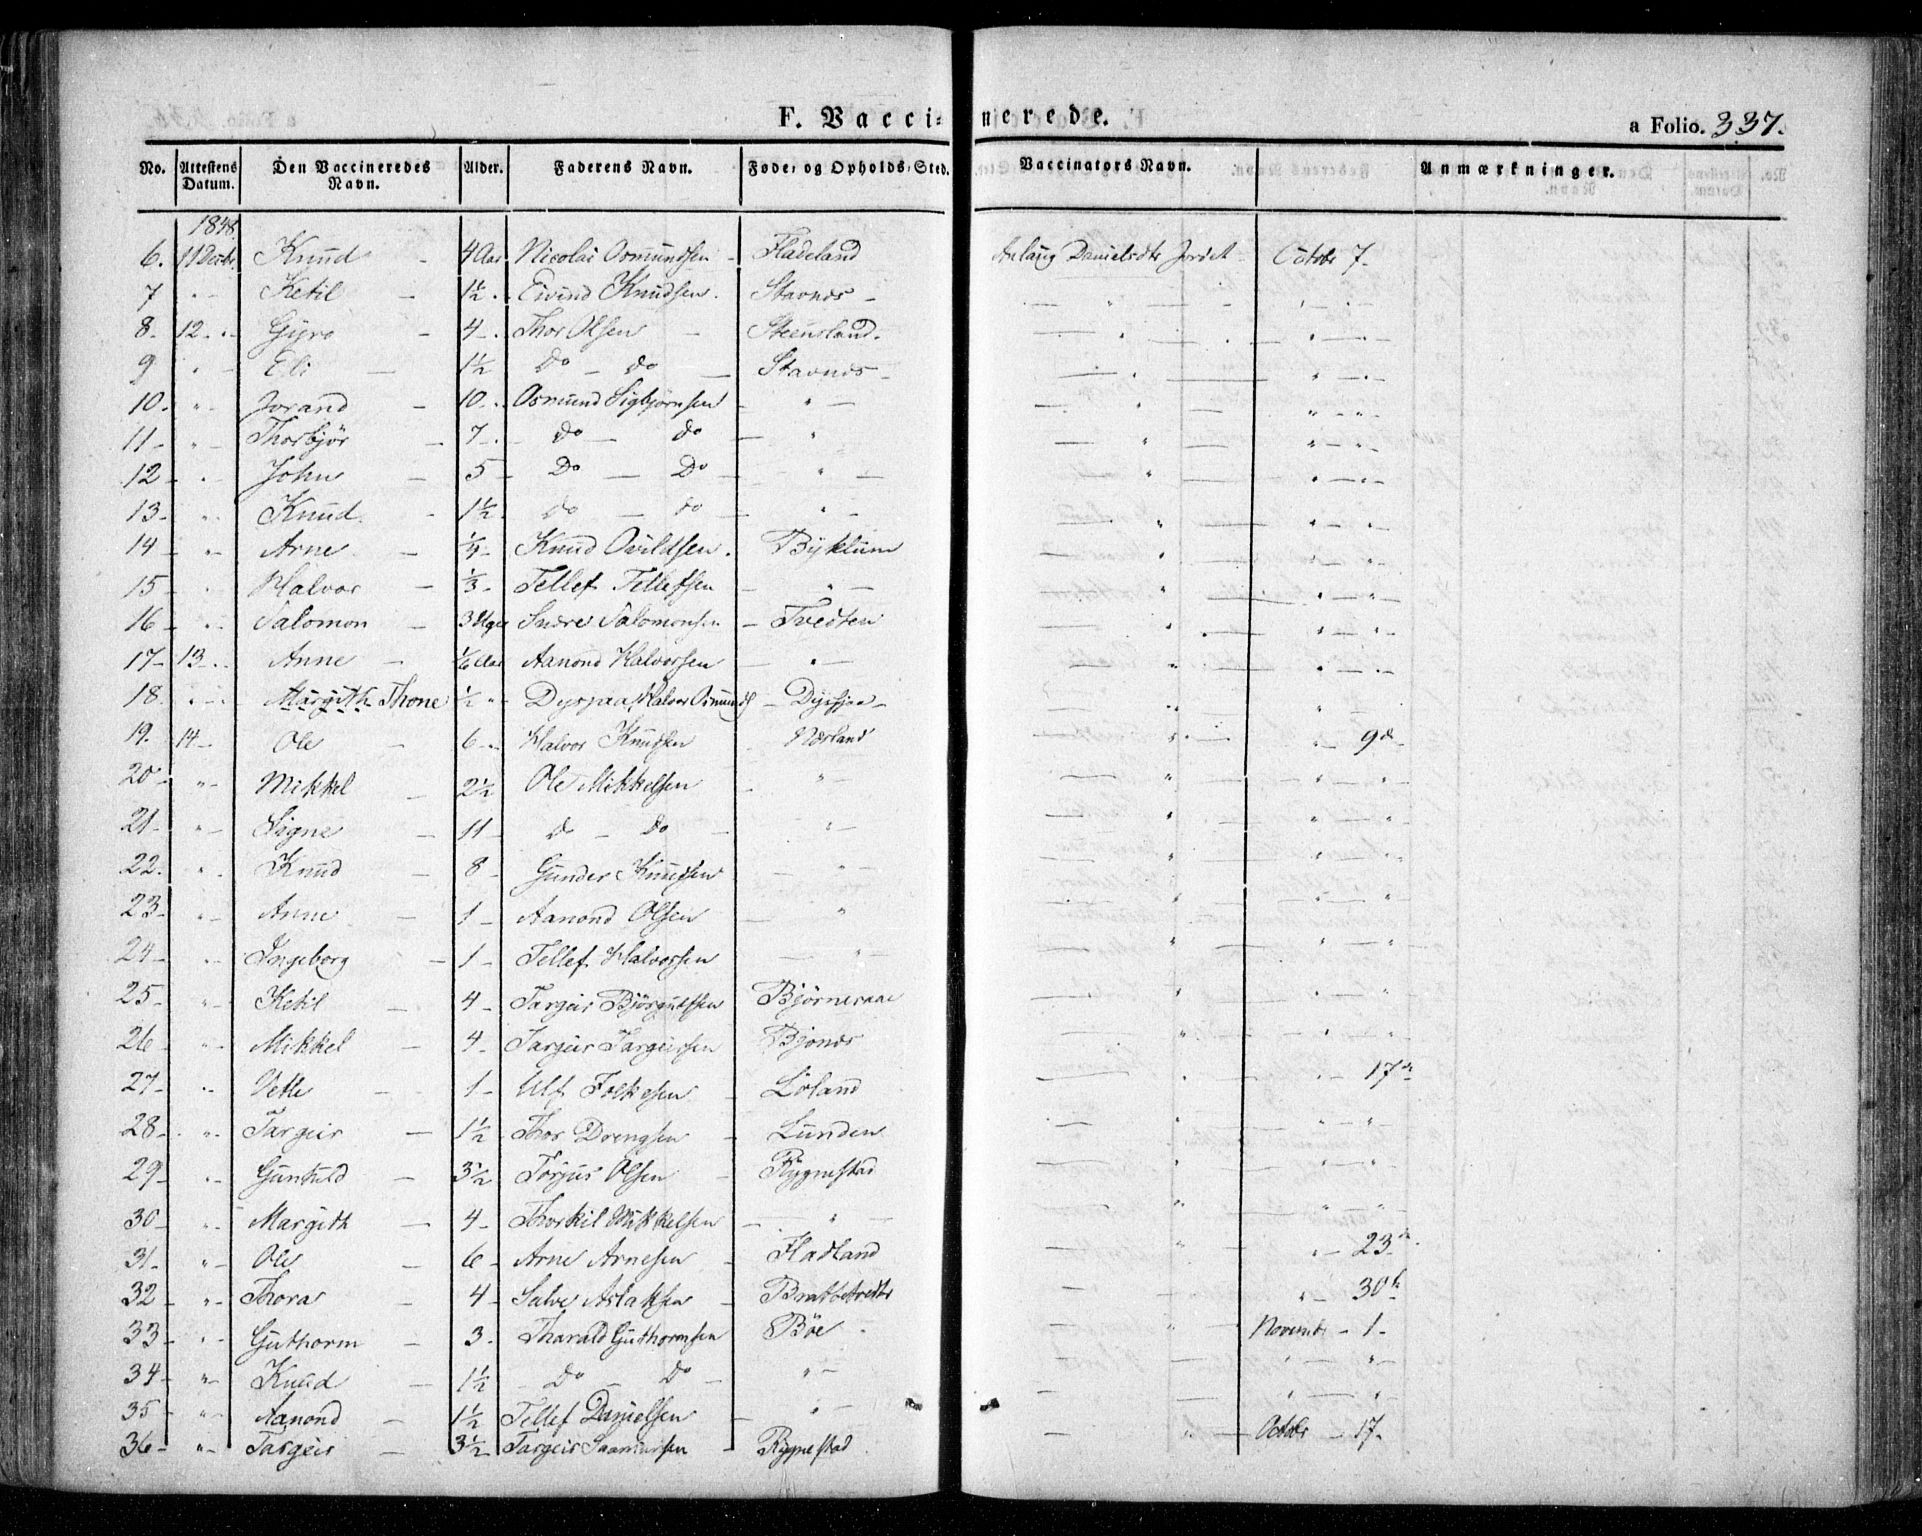 F. Vaccinerede.
a Folio. 337.
No. Attestens Datum. Den Vaccineredes Navn. Alder. Faderens Navn. Føde- og Opholds-Sted. Vaccinators Navn. Anmærkninger.
1848
6. 11 Decbr. Knud - 4 Aar Nicolai Osmundsen - Fladeland Danielsdtr October 7.
7 " - Ketil - 1½ . Eivind Knudsen. Stavnes - " " -
8. 12 " Gyro - 4 - Thor Olsen - Steensland. " " -
9 " - Eli - 1½ Do - do - Stavnes - " " -
10. " - Jorand - 10 . Osmund Sigbjørnsen - " - " " - " -
11 - " - Thorbjør - 7 - Do - do - " " " - " -
12 - " John - 5 - Do - Do - " - " " - " -
13. " Knud. - 1½ do - do - " - " " - " -
14 " - Arne - ¼ - Knud Ovildsen. Byklum " " - " -
15 " Halvor - ⅓ - Tellef Tellefsen - " - " " - " -
16 - " Salomon - 3 Uger Salomonsen - Tvedten " " - " -
17 - 13 - Anne - ⅙ Aar Aanond Halvorsen - " - " " - " -
18. " - Margith Thone ½ " Halvor Osmunds - " " - " -
19. 14 - Ole - 6 - Halvor Knudsen Norland " " - 9de
20 - " - Mikkel - 2½ Ole Mikkelsen - " - " " - " -
21 - " - Signe - 11 - do - do - " - " " - " -
22. " Knud 8 - Gunder Knudsen - " " " - " -
23 - " - Anne - 1 - Aanond Olsen - " " " - " -
24 - " - Ingeborg - 1 - Tellef Halvorsen - " - " " - " -
25 - " Ketil - 4 - Targeir Bjørgulfsen Bjørneraae " " - " -
26 - " Mikkel - 4 - Targeir Targeirsen Bjones " " - " -
27 - " Vetle - 1 - Ulf Folkesen - Löland " " - 17de
28 - " Targeir - 1½ - Thor Drengsen - Lunden " " - " -
29 - " - Gunhild - 3½ Torjus Olsen - Rygnestad " " - " -
30 - " Margith - 4 - Thorkil Mikkelsen - " - " " - " -
31 - " - Ole - 6 - Arne Arnesen - Fladland " " - 23de
32 - " - Thora - 4 - Salve Aslaksen - " " - 30te
33 - " Guthorm - 3. Tharald Guthormsen Böe " Novembr - 1 -
34 " - Knud - 1½ - Do - Do - " - " " - " -
35 " - Aanond - 1½ - Tellef Danielsen - " - " " -
36 - " - Targeir - 3½ - Targeir - Rygnestad " Octobr - 17 -